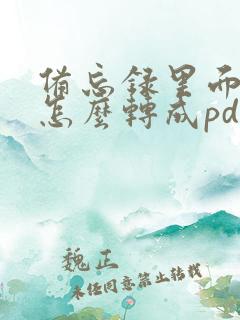 備忘録里而
怎麽轉成pd
魏正
未任同意禁止转载